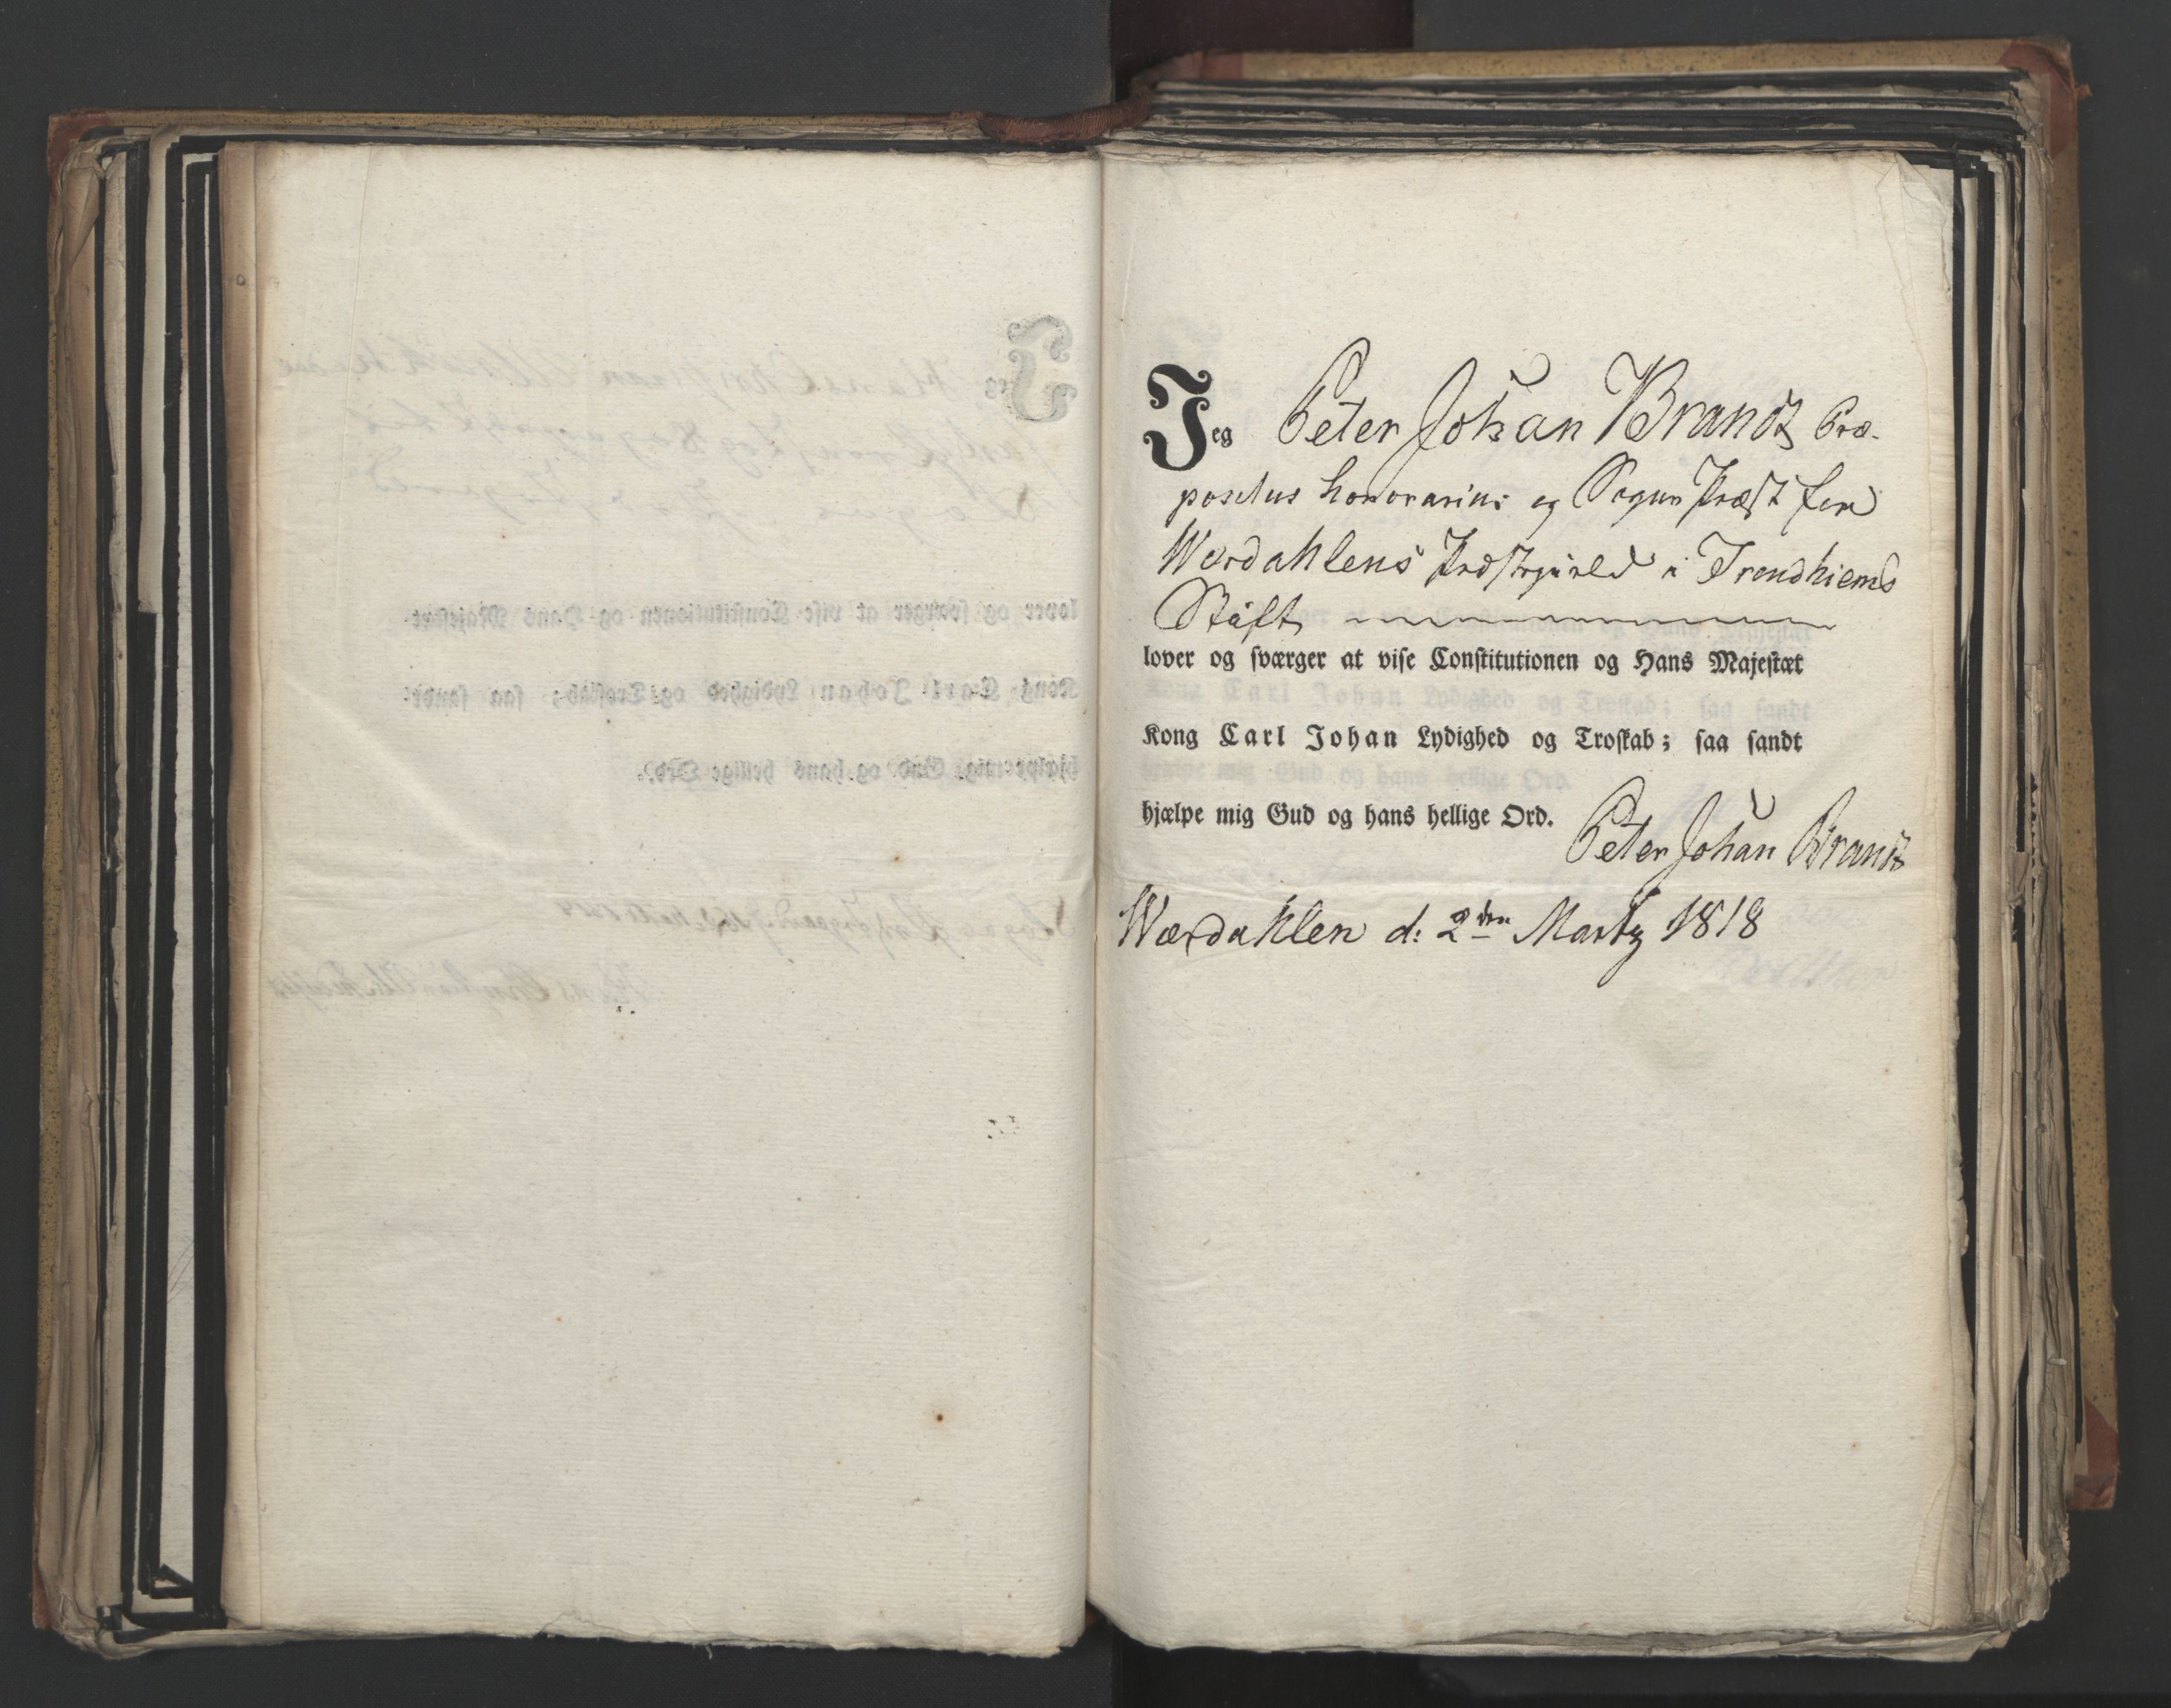 Jeg Peter Johan Brandt Præ-
positus honorarius og Sogne Præst for
Wærdahlens Præstegield i Trondhiems
Stift
lover og sværger at vise Constitutionen og Hans Majestæt
Kong Carl Johan Lydighed og Troskab; saa sandt
hjælpe mig Gud og hans hellige Ord.
Peter Johan Brandt
Wærdahlen d: 2den Marty 1818